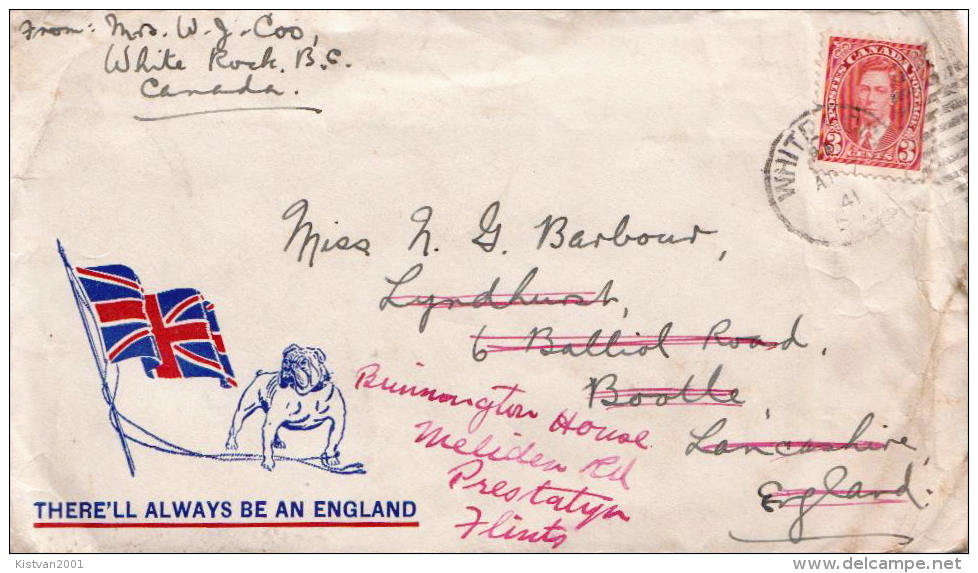 From: Mrs. W. J. Coo,
White Rock. B.C.
Canada.
POSTES CANADA POSTAGE
3 CENTS 3
WHITE
41
Miss N. G. Barbour,
Lyndhurst,
6 Balliol Road,
Bootle,
Lancashire,
England.
Binnington House
Meliden Rd
Prestatyn
Flints
THERE'LL ALWAYS BE AN ENGLAND
Kistvan2001
delcampe.net